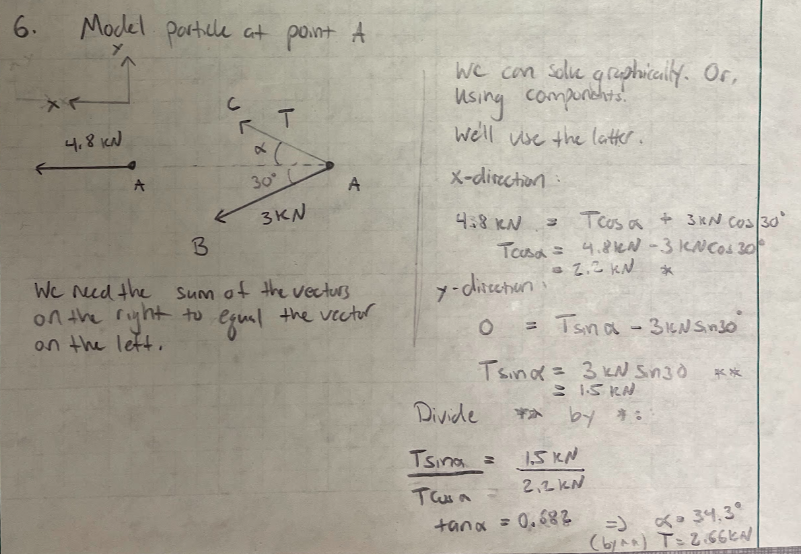 6. Model particle at point A
y
x
4.8 KN
A
C
T
α
30°
A
3KN
B
We need the sum of the vectors
on the right to equal the vector
on the left.
We can solve graphically. Or,
using components.
We'll use the latter.
x-direction:
4.8 KN = Tcosα + 3KN cos 30°
Tcosα = 4.8KN - 3 KNcos 30°
= 2.2 KN *
y-direction:
0 = Tsinα - 3KNsin30°
Tsinα = 3 KN sin30 **
= 1.5 KN
Divide ** by *:
Tsinα = 1.5 KN
Tcosα = 2.2KN
tanα = 0.682 ⇒ α = 34.3°
(by **) T = 2.66KN